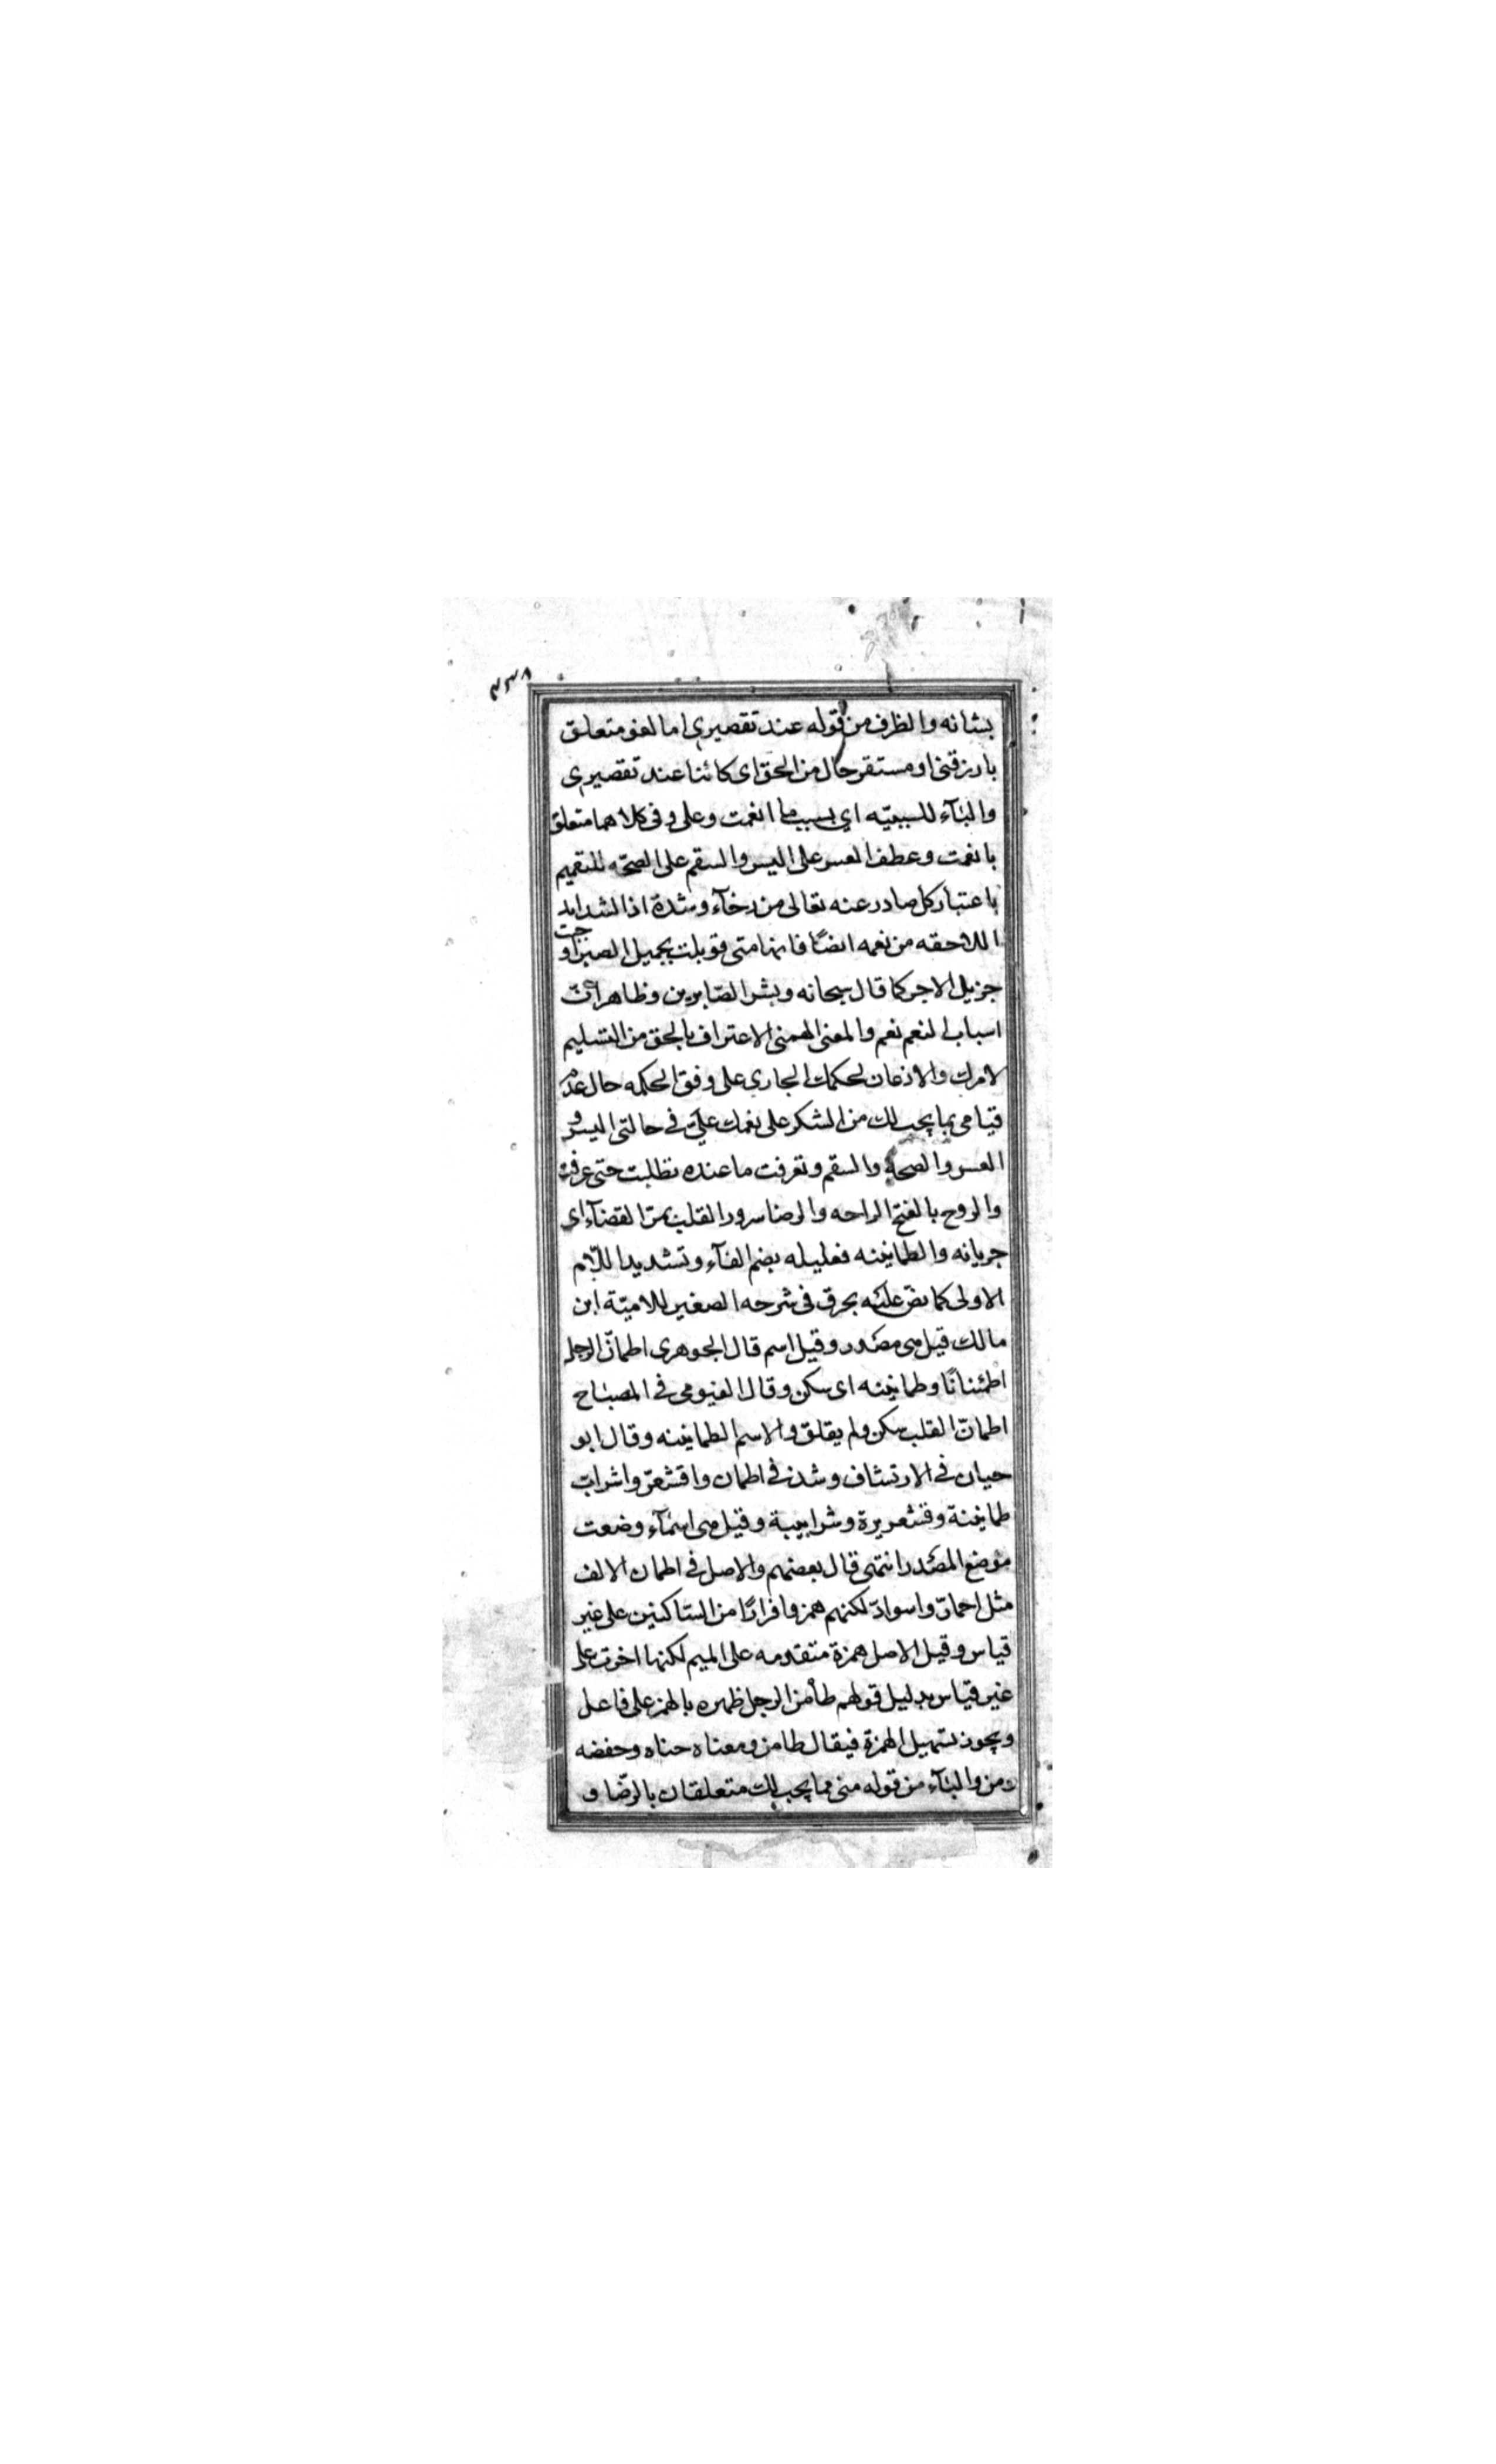 ٣٣٨
بشانه والظرف من قوله عند تقصيري اما لغو متعلق
بارزقني او مستقر حال من الحق اى كائنا عند تقصيرى
والبآء للسببيّه اي بسبب ما انعمت وعلى وفى كلاهما متعلق
بانعمت وعطف العسر على اليسر والسقم على الصحّه للتعميم
باعتبار كل صادر عنه تعالى من رخآء وشدة اذ الشدايد
اللاحقه من نعمه ايضًا فانها متى قوبلت بجميل الصبر اوجبت
جزيل الاجر كما قال سبحانه وبشر الصّابرين وظاهر انّ
اسباب النعم نعم والمعنى الهمنى الاعتراف بالحق من التسليم
لامرك والاذعان لحكمك الجاري على وفق الحكمه حال عدم
قيامى بما يجب لك من الشكر على نعمك علىّ فى حالتى اليسر و
العسر والصحة والسقم وتعرفت ما عنده تطلبت حتى عرفت
والروح بالفتح الراحه والرضا سرور القلب بمرّ القضآء اى
جريانه والطمانينه فعليله بضم الفآء وتشديد اللّام
الاولى كما نصّ عليه بحرق فى شرحه الصغير للاميّة ابن
مالك قيل هى مصدر وقيل اسم قال الجوهرى اطمانّ الرجل
اطمئنانًا وطمانينه اى سكن وقال الفيومى فى المصباح
اطمانّ القلب سكن ولم يقلق والاسم الطمانينه وقال ابو
حيان فى الارتشاف وشذ فى اطمان واقشعرّ واشرابّ
طمانينة وقشعريرة وشرابيبة وقيل هى اسمآء وضعت
موضع المصدر انتهى قال بعضهم والاصل فى اطمان الالف
مثل احمارّ واسوادّ لكنهم همزوا فرارًا من السّاكنين على غير
قياس وقيل الاصل همزة متقدمه على الميم لكنها اخرت على
غير قياس بدليل قولهم طأمن الرجل ظهره بالهمز على فاعل
ويجوز تسهيل الهمزة فيقال طامن ومعناه حناه وخفضه
ومن والبآء من قوله منى بما يجب لك متعلقان بالرضّا و